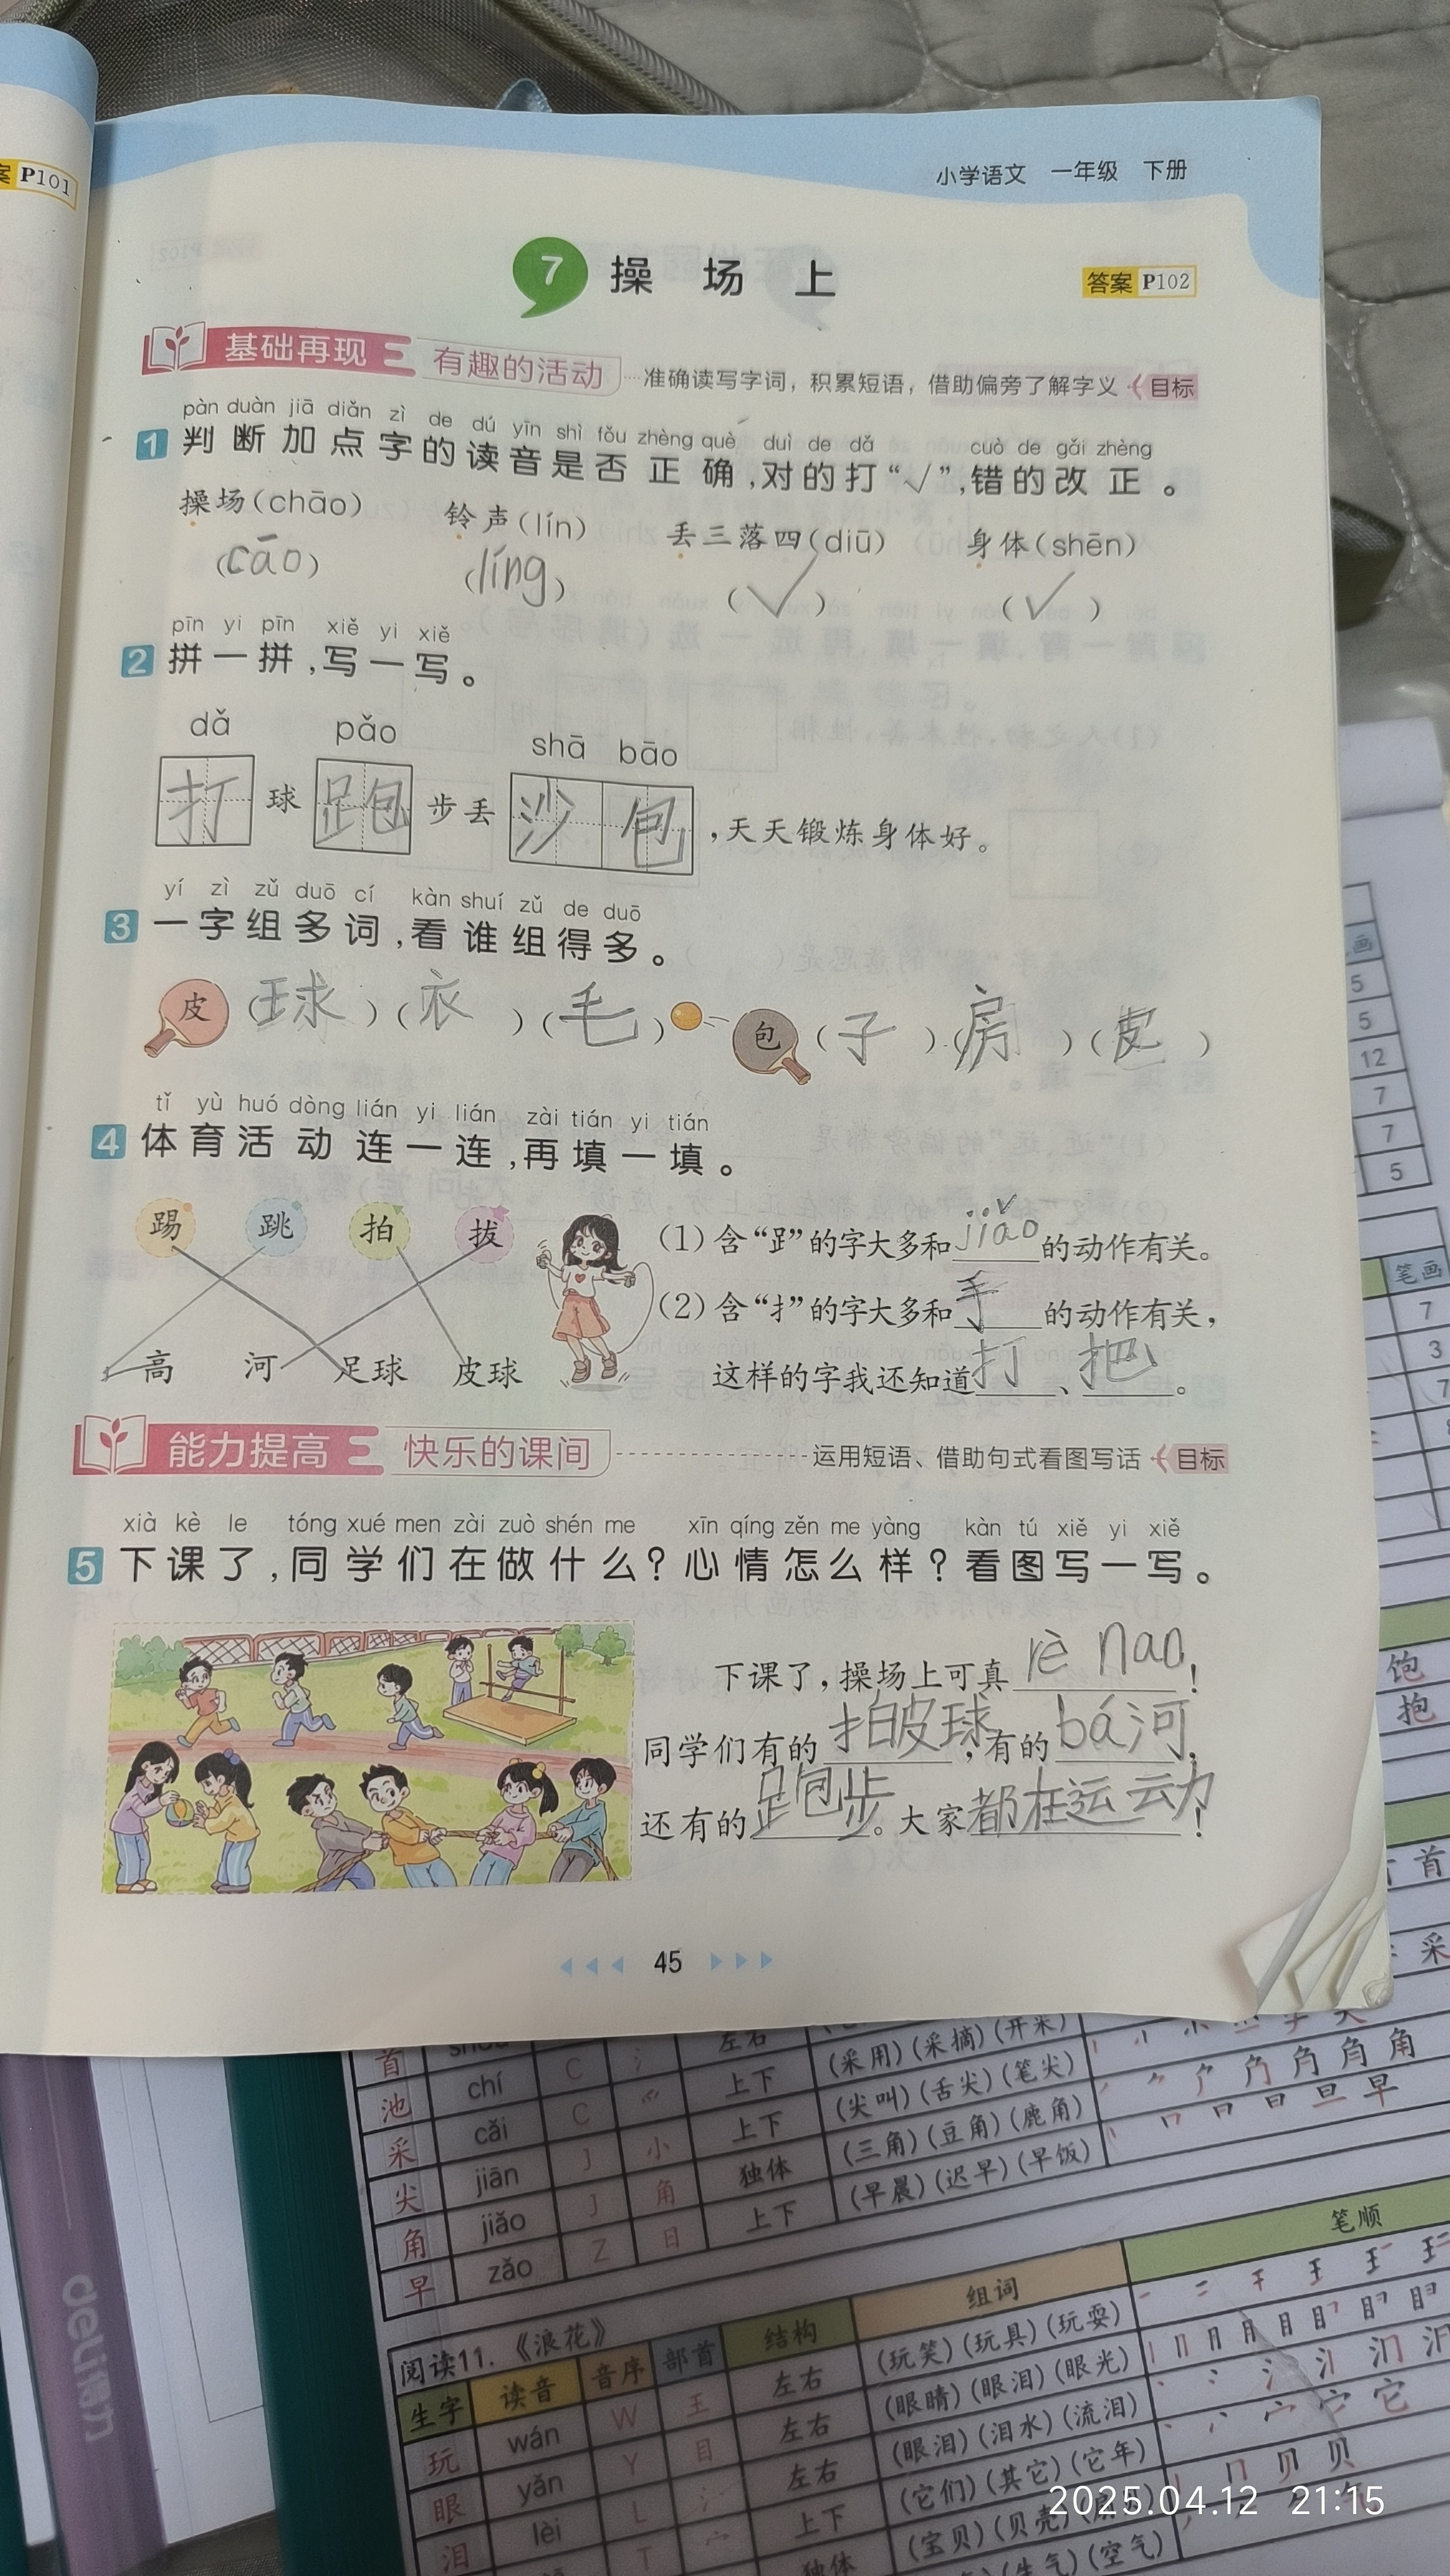 案 P101
小学语文 一年级 下册
7 操场上
答案 P102
基础再现 有趣的活动 准确读写字词，积累短语，借助偏旁了解字义 目标
pàn duàn jiā diǎn zì de dú yīn shì fǒu zhèng què duì de dǎ cuò de gǎi zhèng
1 判断加点字的读音是否正确，对的打“√”，错的改正。
操场(chāo) 铃声(lín) 丢三落四(diū) 身体(shēn)
(cāo) (líng) (√) (√)
pīn yi pīn xiě yi xiě
2 拼一拼，写一写。
dǎ pǎo shā bāo
打球跑步丢沙包，天天锻炼身体好。
yí zì zǔ duō cí kàn shuí zǔ de duō
3 一字组多词，看谁组得多。
皮(球)(衣)(毛) 包(子)(房)(皮)
tǐ yù huó dòng lián yi lián zài tián yi tián
4 体育活动连一连，再填一填。
踢 跳 拍 拔
高 河 足球 皮球
(1)含“⻊”的字大多和jiǎo的动作有关。
(2)含“扌”的字大多和手的动作有关，
这样的字我还知道打、把。
能力提高 快乐的课间 运用短语、借助句式看图写话 目标
xià kè le tóng xué men zài zuò shén me xīn qíng zěn me yàng kàn tú xiě yi xiě
5 下课了，同学们在做什么？心情怎么样？看图写一写。
下课了，操场上可真rè nao！
同学们有的拍皮球，有的bá河，
还有的跑步。大家都在运动！
45
画
5
5
12
7
7
5
笔画
7
3
饱
抱
首
采
首
池 chí C 氵 左右 (采用)(采摘)(开采)
采 cǎi C 爫 上下 (尖叫)(舌尖)(笔尖)
尖 jiān J 小 上下 (三角)(豆角)(鹿角)
角 jiǎo J 角 独体 (早晨)(迟早)(早饭)
早 zǎo Z 日 上下
阅读11.《浪花》
生字 读音 音序 部首 结构 组词 笔顺
玩 wán W 王 左右 (玩笑)(玩具)(玩耍)
眼 yǎn Y 目 左右 (眼睛)(眼泪)(眼光)
泪 lèi L 氵 左右 (眼泪)(泪水)(流泪)
T 宀 上下 (它们)(其它)(它年)
独体 (宝贝)(贝壳)
(生气)(空气)
deli
2025.04.12 21:15